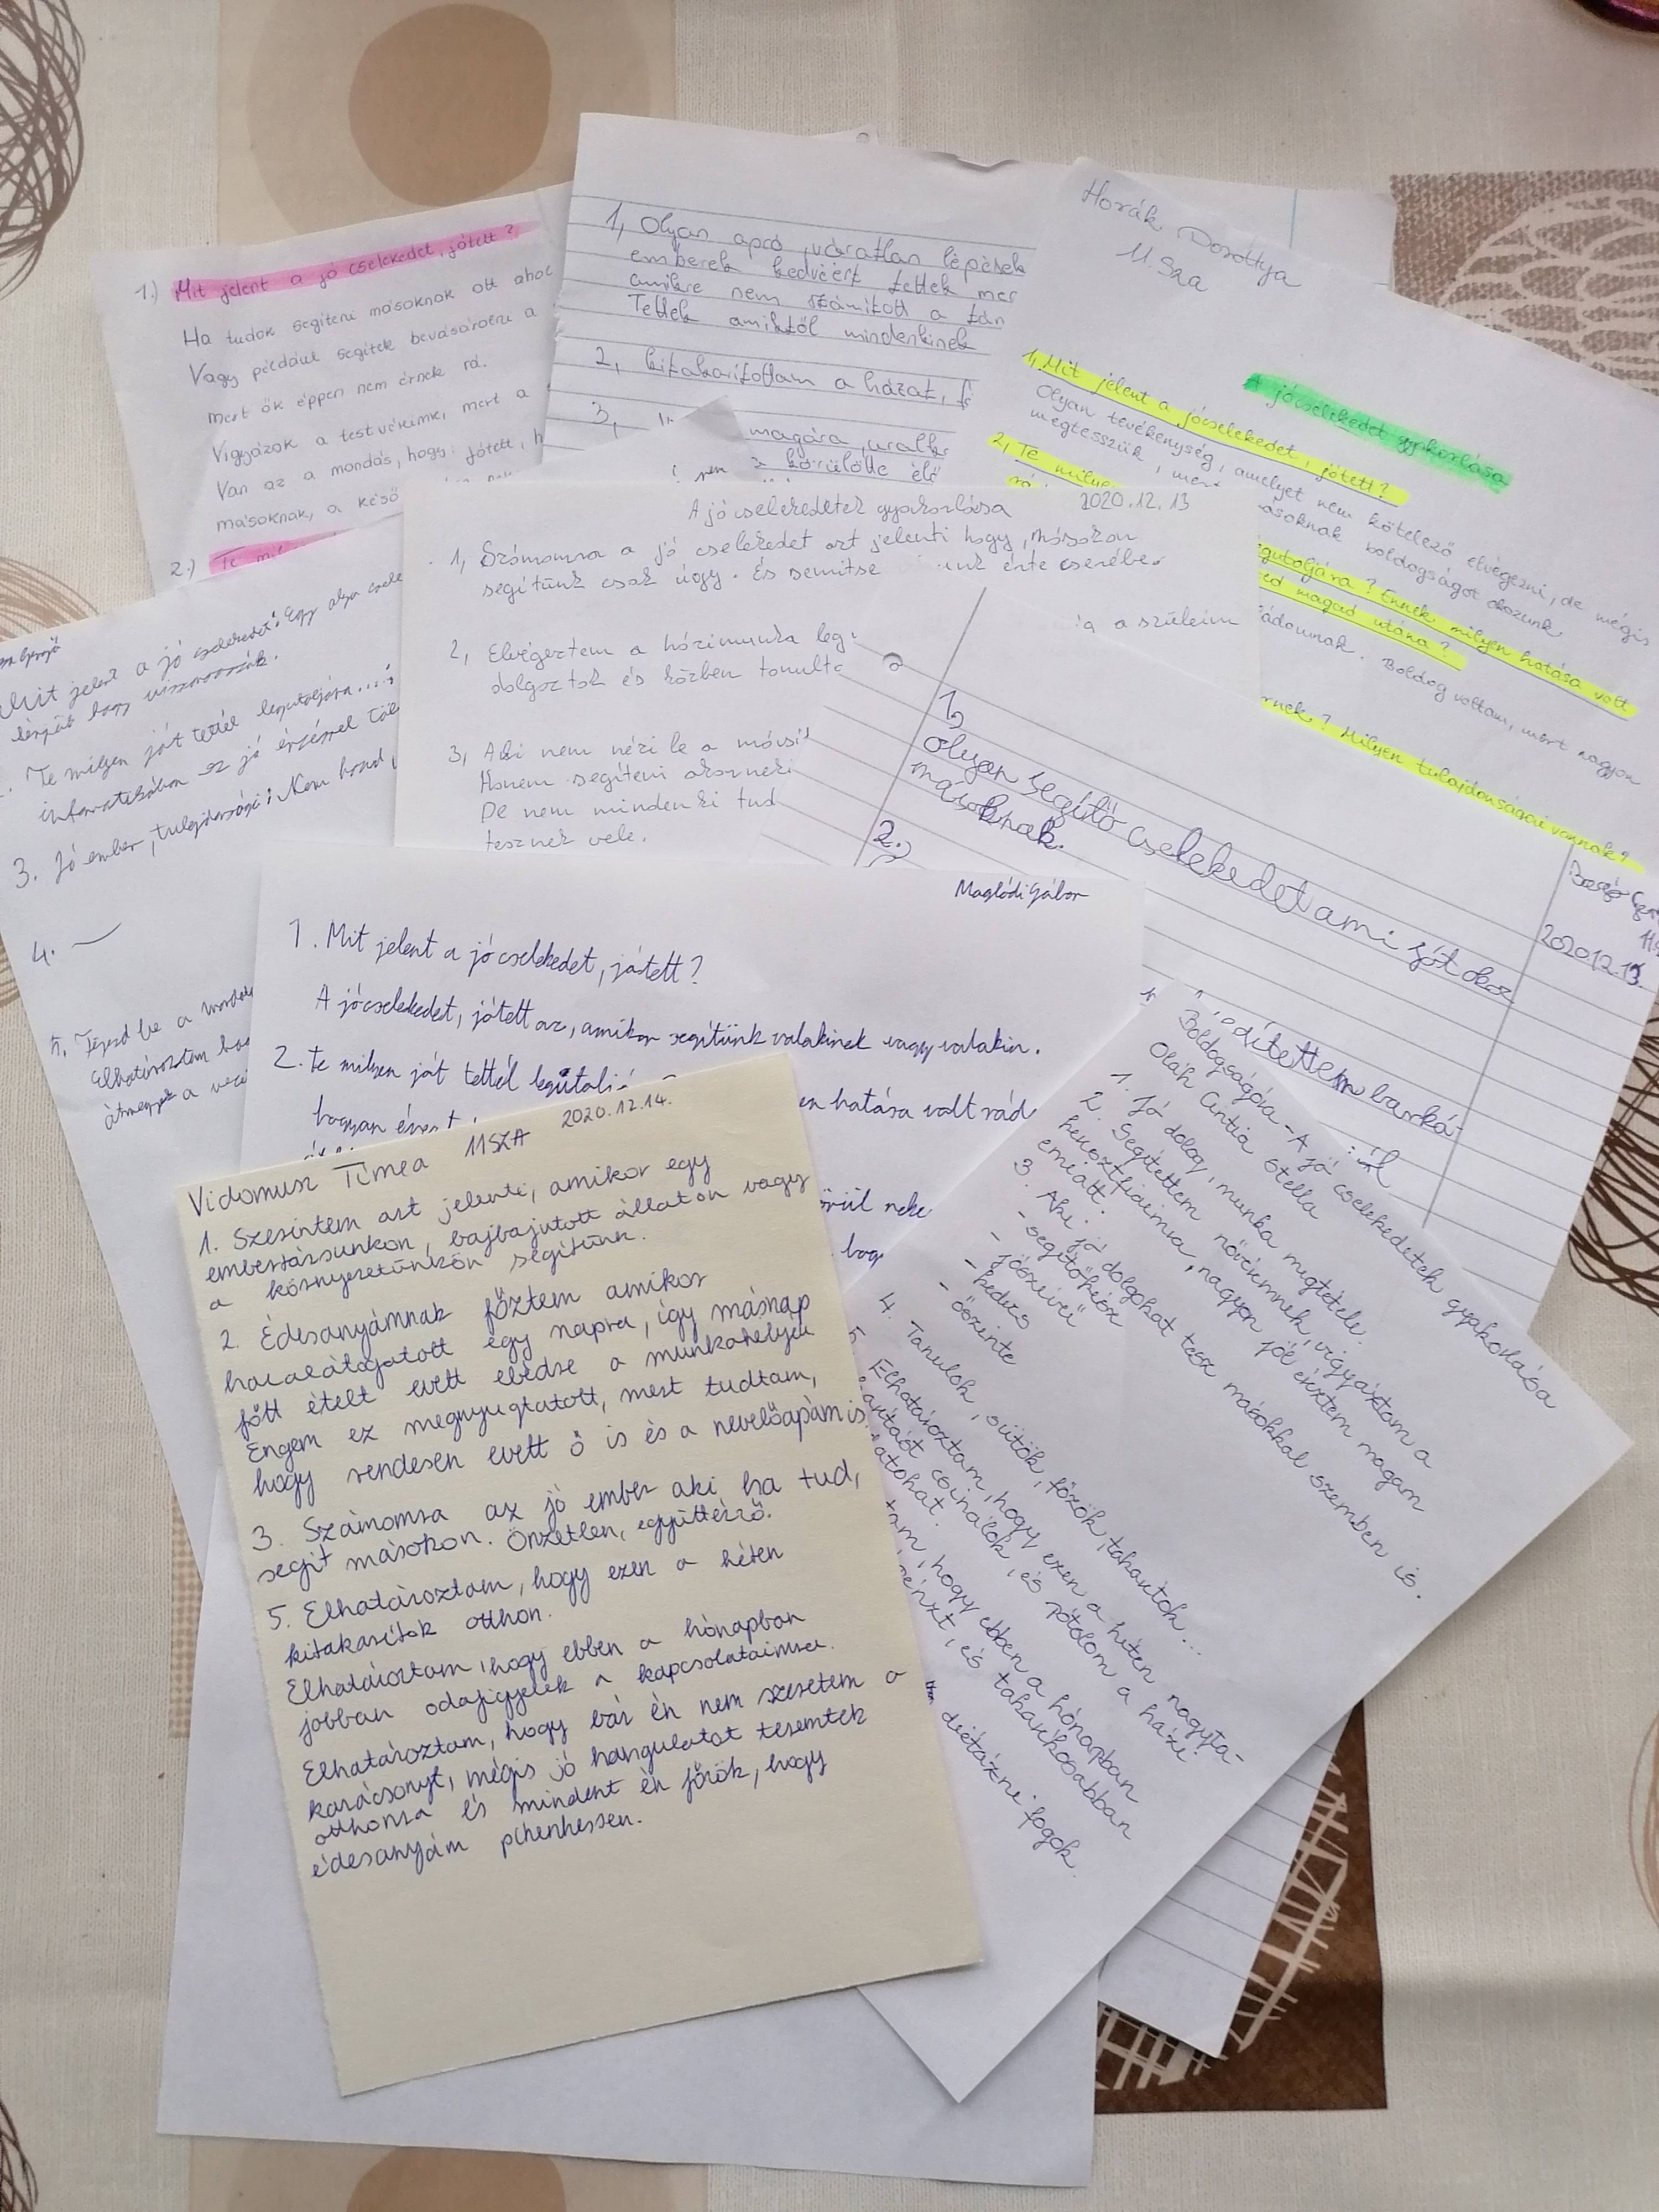 1.) Mit jelent a jó cselekedet, jótett?
Ha tudok segíteni másoknak ott ahol
Vagy például segítek bevásárolni a
mert ők éppen nem érnek rá.
Vigyázok a testvéreimre, mert a
Van az a mondás, hogy: jótett, h
másoknak, a késő
2.) Te mil
1, Olyan apró, váratlan lépések
emberek kedvéért tettek mer
amikre nem számított a tár
Tettek amiktől mindenkinek
2, kitakarítottam a házat, f
3,
magára, uralk
körülötte élő
Horák Dorottya
11. Sza
A jócselekedet gyakorlása
1, Mit jelent a jócselekedet, jótett?
Olyan tevékenység, amelyet nem kötelező elvégezni, de mégis
megtesszük, mert másoknak boldogságot okozunk.
2, Te milyen
égutoljára? Ennek milyen hatása volt
ed magad utána?
ládomnak. Boldog voltam, mert nagyon
rnek? Milyen tulajdonságai vannak?
Mit jelent a jó cselekedet: Egy olyan csele
kérjük hogy visszaadják.
Te milyen jót tettél legutoljára....;
informatikában ez jó érzéssel töl
3. Jó ember, tulajdonságai: Nem hord,
4. —
5. Fejezd be a mondat
Elhatároztam hog
átmegyek a vezé
A jó cselekedetek gyakorlása 2020.12.13
1, Számomra a jó cselekedet azt jelenti hogy, másokon
segítünk csak úgy. És semmitse unk érte cserébe.
2, Elvégeztem a házimunka leg
a a szüleim
dolgoztak és közben tanulta
3, Aki nem nézi le a másik
Hanem segíteni akar neki
De nem mindenki tud
tesznek vele.
1,
Olyan segítő cselekedet ami jót okoz
másoknak.
2.)
2020.12.13.
Maglódi Gábor
1. Mit jelent a jó cselekedet, jótett?
A jócselekedet, jótett az, amikor segítünk valakinek vagy valakin.
2. Te milyen jót tettél legutoljá
en hatása volt rád
hogyan érezt
örül neke
hog
Boldogságóra - A jó cselekedetek gyakorlása
Oláh Cintia Stella
1. Jó dolog, munka megtétele.
2. Segítettem nővéremnek, vigyáztam a
keresztfiaimra, nagyon jól éreztem magam
emiatt.
3. Aki jó dolgokat tesz másokkal szemben is.
- segítőkész
- jószívű
- kedves
- őszinte
4. Tanulok, sütök, főzök, takarítok...
5. Elhatároztam, hogy ezen a héten nagyta-
karítást csinálok, és pótolom a házi
atokat.
tam, hogy ebben a hónapban
pénzt, és takarékosabban
diétázni fogok.
Vidomusz Tímea 11SZA 2020.12.14.
1. Szerintem azt jelenti, amikor egy
embertársunkon, bajbajutott állaton vagy
a környezetünkön segítünk.
2. Édesanyámnak főztem amikor
hazalátogatott egy napra, így másnap
főtt ételt evett ebédre a munkahelyén
Engem ez megnyugtatott, mert tudtam,
hogy rendesen evett ő is és a nevelőapám is.
3. Számomra az jó ember aki ha tud,
segít másokon. Önzetlen, együttérző.
5. Elhatároztam, hogy ezen a héten
kitakarítok otthon.
Elhatároztam, hogy ebben a hónapban
jobban odafigyelek a kapcsolataimra.
Elhatároztam, hogy bár én nem szeretem a
karácsonyt, mégis jó hangulatot teremtek
otthonra és mindent én főzök, hogy
édesanyám pihenhessen.